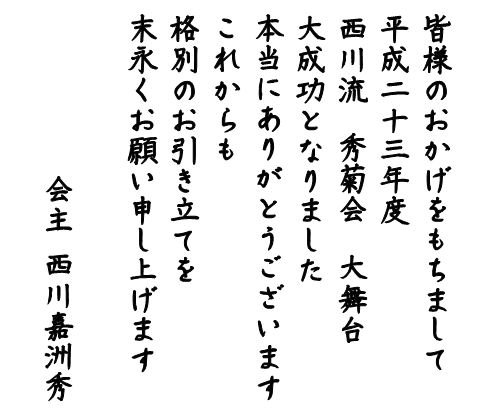 皆様のおかげをもちまして
平成二十三年度
西川流　秀菊会　大舞台
大成功となりました
本当にありがとうございます
これからも
格別のお引き立てを
末永くお願い申し上げます
会主　西川嘉洲秀